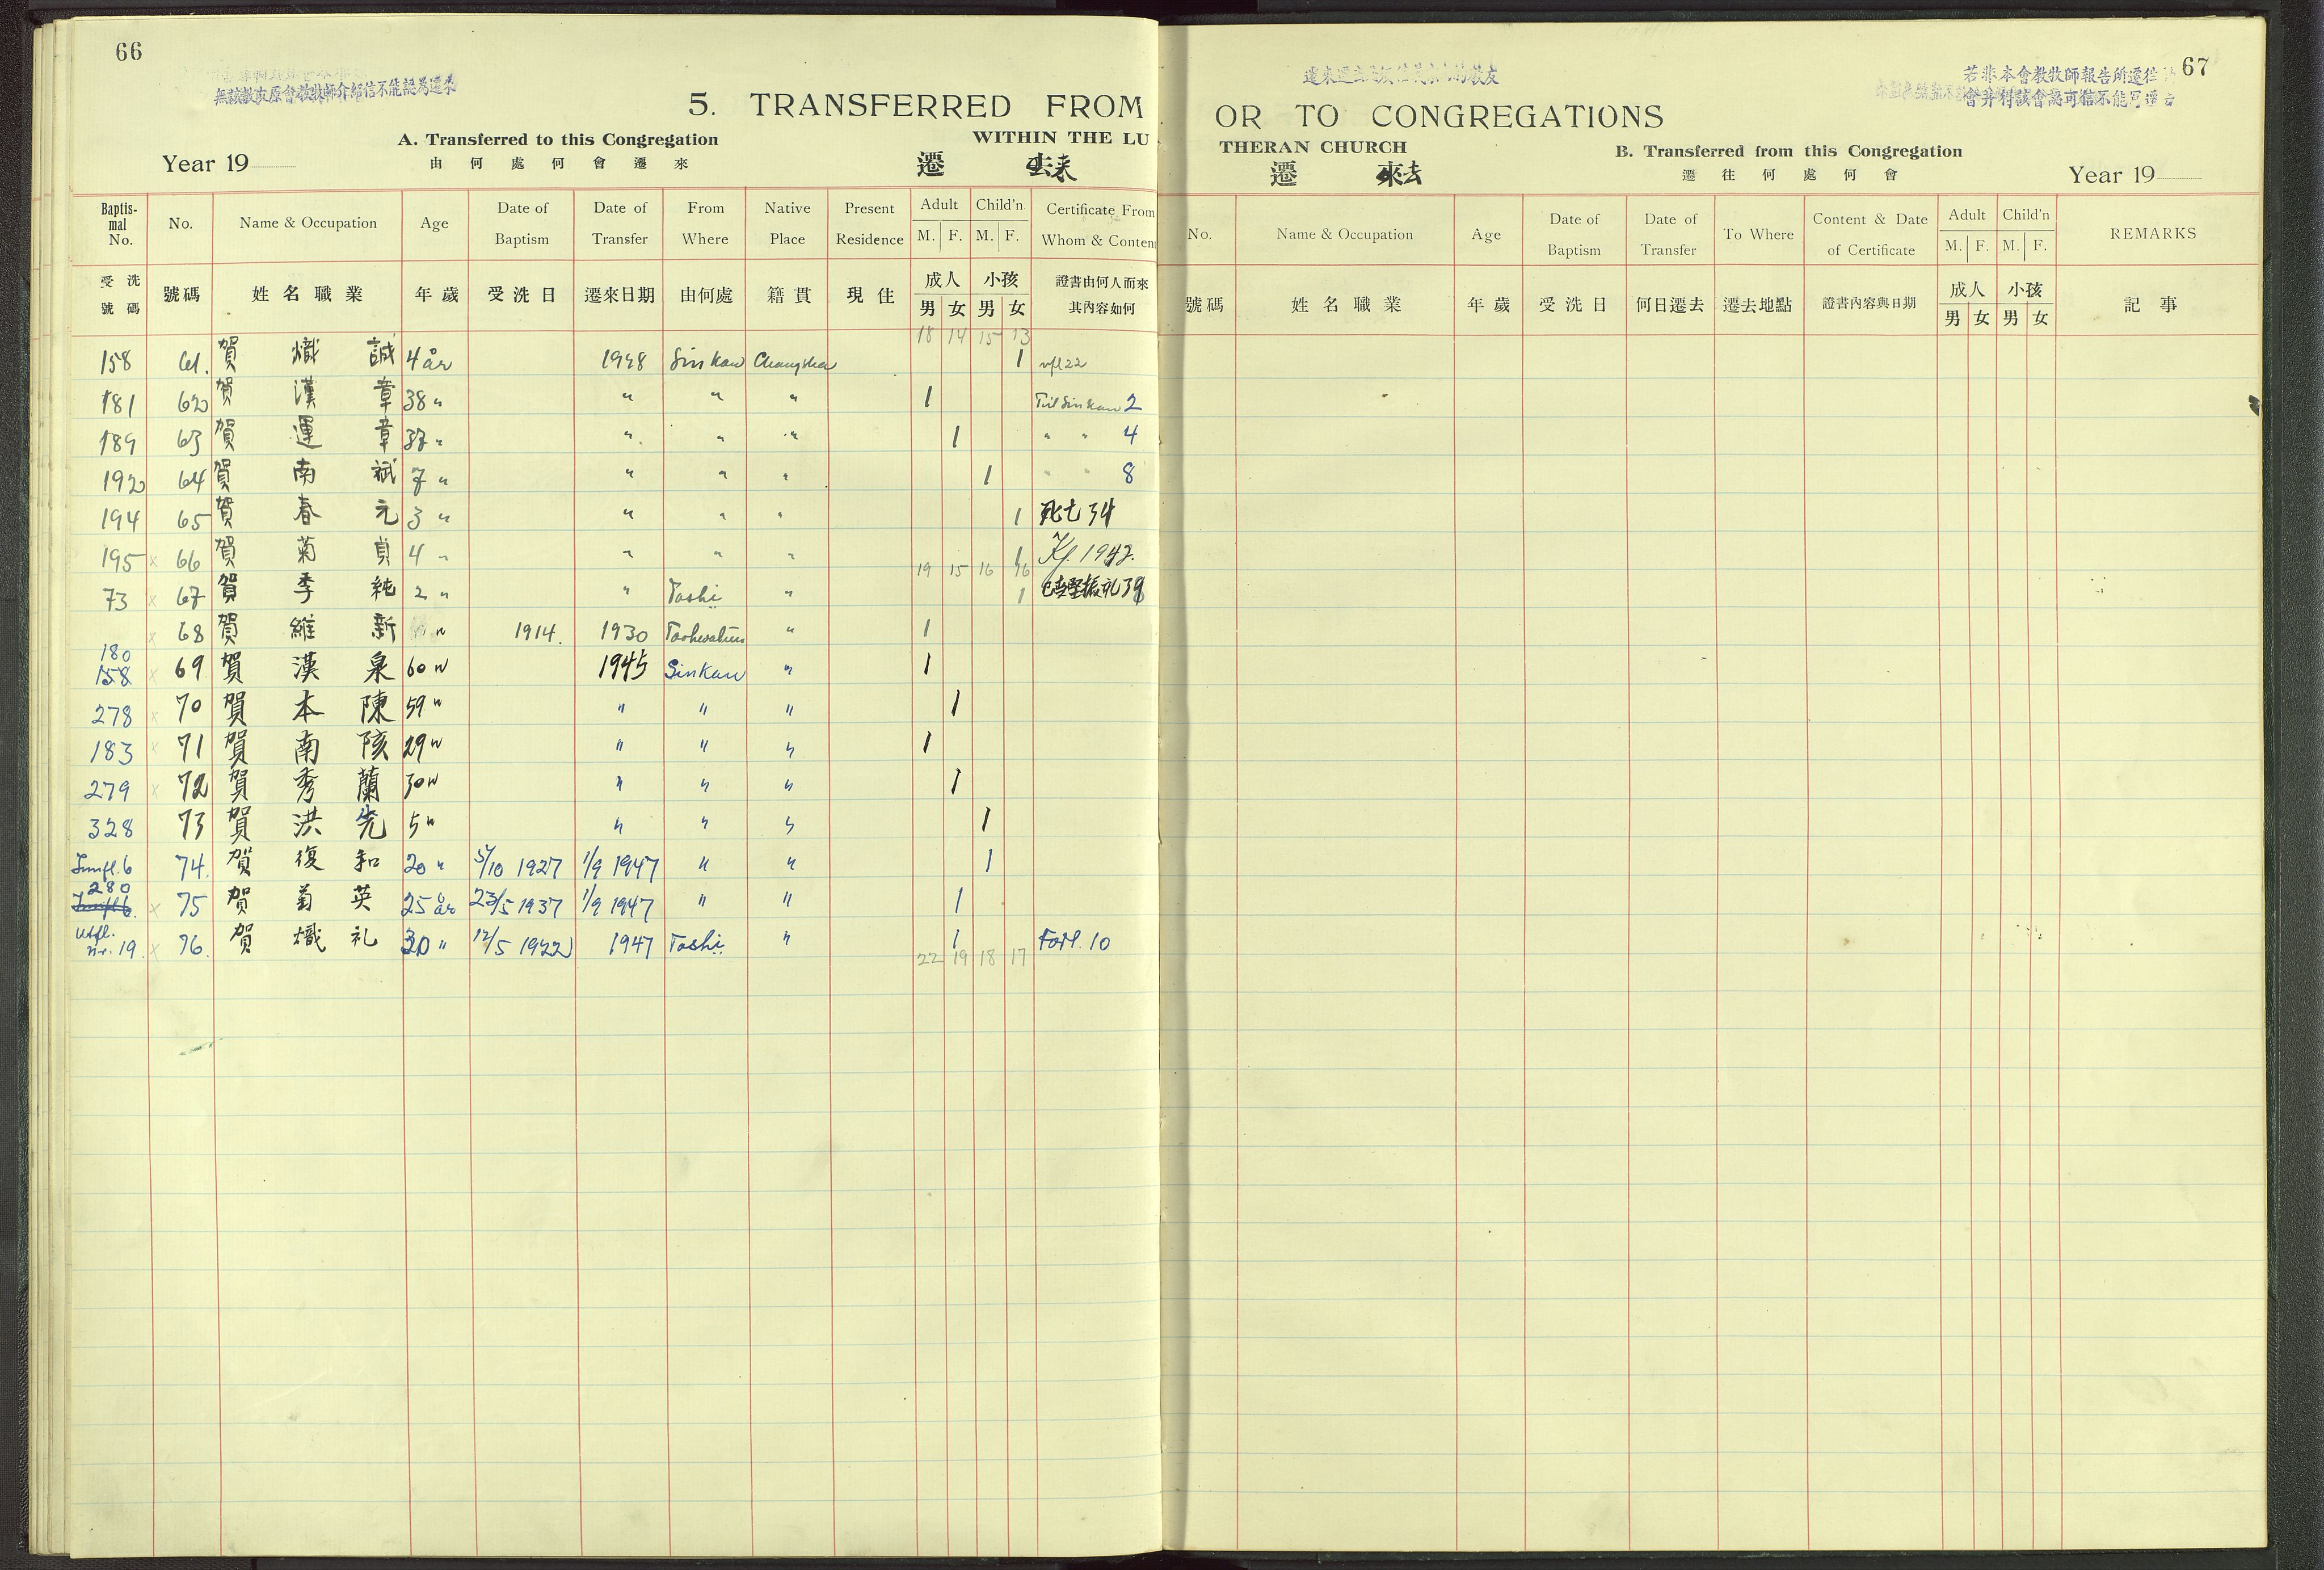 66
無該教友原會教牧師介紹信不能認為遷來
5. TRANSFERRED FROM
A. Transferred to this Congregation
WITHIN THE LU
Year 19
由何處何會遷來
遷 去来
Baptis-mal No. No. Name & Occupation Age Date of Baptism Date of Transfer From Where Native Place Present Residence Adult M. F. Child'n M. F. Certificate From Whom & Conten
受洗號碼 號碼 姓名職業 年歲 受洗日 遷來日期 由何處 籍貫 現住 成人 男 女 小孩 男 女 證書由何人而來其內容如何
18 14 15 13
158 61. 賀熾誠 4 år 1928 Sinkaw Changsha 1 utfl 22
181 62 賀漢章 38 " " " " 1 Til Sinkaw 2
189 63 賀運章 37 " " " " 1 " " 4
192 64 賀南斌 7 " " " " 1 " " 8
194 65 賀春元 3 " " " " 1 死亡 34
195 x 66 賀菊貞 4 " " " " 1 Kf. 1942.
19 15 16 16
73 x 67 賀季純 2 " " Toshi " 1 堅振礼 39
x 68 賀維新 " 1914. 1930 " 1
180
158 x 69 賀漢泉 60 " 1945 Sinkaw " 1
278 x 70 賀本陳 59 " " " " 1
183 x 71 賀南陔 29 " " " " 1
279 x 72 賀秀蘭 30 " " " " 1
328 73 賀洪先 5 " " " " 1
Innfl. 6 74. 賀復和 20 " 5/10 1927 1/9 1947 " " 1
280
Innfl 6. x 75 賀菊英 25 år 23/5 1937 1/9 1947 " " 1
Utfl. nr. 19. x 76. 賀熾礼 30 " 12/5 1922 1947 Toshi " 1 Forl. 10
22 19 18 17
67
若非本會教牧師報告所遷往
會并得該會認可信不能寫遷去
OR TO CONGREGATIONS
THERAN CHURCH
B. Transferred from this Congregation
遷 來去
遷往何處何會
Year 19
No. Name & Occupation Age Date of Baptism Date of Transfer To Where Content & Date of Certificate Adult M. F. Child'n M. F. REMARKS
號碼 姓名職業 年歲 受洗日 何日遷去 遷去地點 證書內容與日期 成人 男 女 小孩 男 女 記事